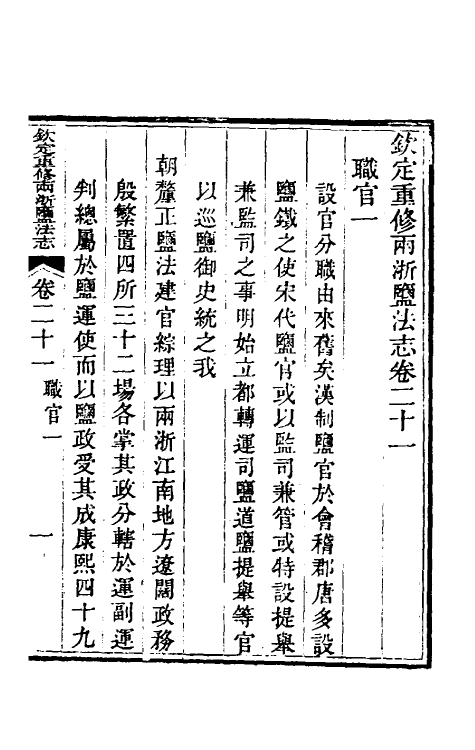 欽定重修兩浙鹽法志卷二十一
職官一
設官分職由來舊矣漢制鹽官於會稽郡唐多設
鹽鐵之使宋代鹽官或以監司兼管或特設提舉
兼監司之事明始立都轉運司鹽道鹽提舉等官
以巡鹽御史統之我
朝釐正鹽法建官綜理以兩浙江南地方遼闊政務
殷繁置四所三十二場各掌其政分轄於運副運
判總屬於鹽運使而以鹽政受其成康熙四十九
欽定重修兩浙鹽法志 卷二十一 職官一 一